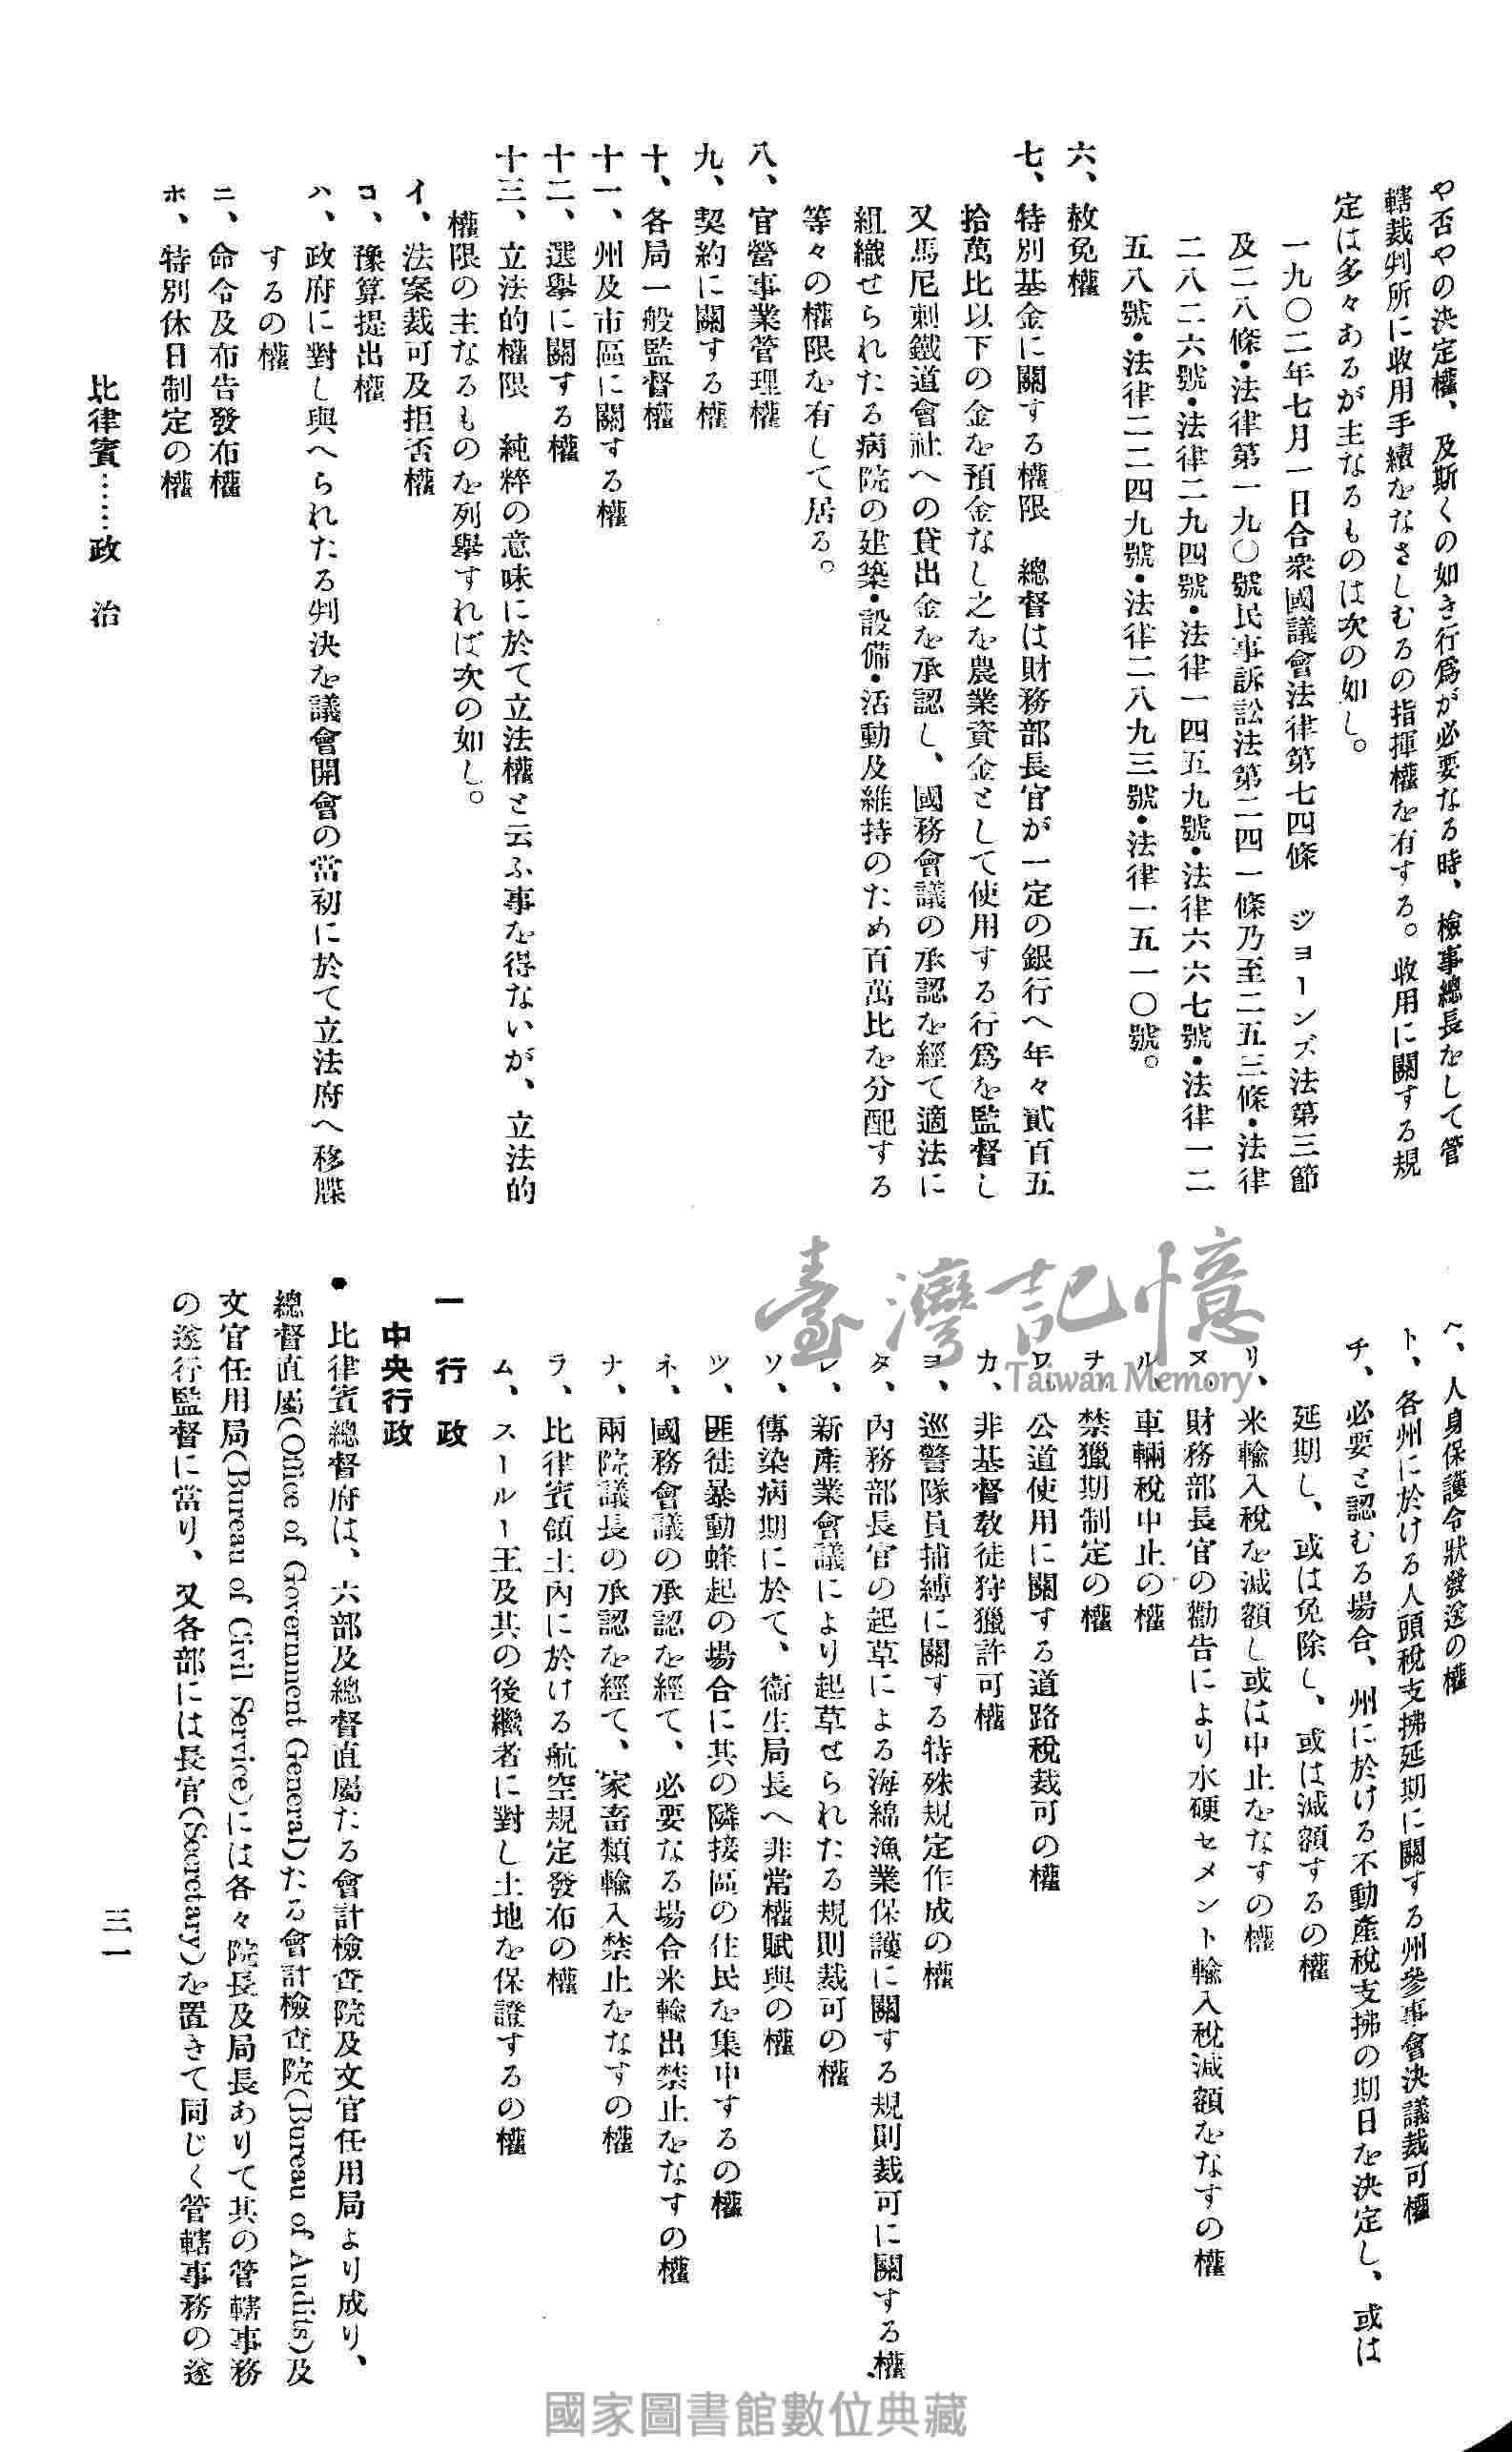 や否やの決定權、及斯くの如き行爲が必要なる時、檢事總長をして管
轄裁判所に收用手續をなさしむるの指揮權を有する。收用に關する規
定は多々あるが主なるものは次の如し。
一九〇二年七月一日合衆國議會法律第七四條　ジョーンズ法第三節
及二八條・法律第一九〇號民事訴訟法第二四一條乃至二五三條・法律
二八二六號・法律二九四號・法律一四五九號・法律六六七號・法律一二
五八號・法律二二四九號・法律二八九三號・法律一五一〇號。
六、赦免權
七、特別基金に關する權限　總督は財務部長官が一定の銀行へ年々貳百五
拾萬比以下の金を預金なし之を農業資金として使用する行爲を監督し
又馬尼剌鐵道會社への貸出金を承認し、國務會議の承認を經て適法に
組織せられたる病院の建築・設備・活動及維持のため百萬比を分配する
等々の權限を有して居る。
八、官營事業管理權
九、契約に關する權
十、各局一般監督權
十一、州及市區に關する權
十二、選擧に關する權
十三、立法的權限　純粹の意味に於て立法權と云ふ事を得ないが、立法的
權限の主なるものを列擧すれば次の如し。
イ、法案裁可及拒否權
ロ、豫算提出權
ハ、政府に對し與へられたる判決を議會開會の當初に於て立法府へ移牒
するの權
ニ、命令及布告發布權
ホ、特別休日制定の權
比律賓……政　治
ヘ、人身保護令狀發送の權
ト、各州に於ける人頭稅支拂延期に關する州參事會決議裁可權
チ、必要と認むる場合、州に於ける不動產稅支拂の期日を決定し、或は
延期し、或は免除し、或は減額するの權
リ、米輸入稅を減額し或は中止をなすの權
ヌ、財務部長官の勸告により水硬セメント輸入稅減額をなすの權
ル、車輛稅中止の權
ヲ、禁獵期制定の權
ワ、公道使用に關する道路稅裁可の權
カ、非基督敎徒狩獵許可權
ヨ、巡警隊員捕縛に關する特殊規定作成の權
タ、內務部長官の起草による海綿漁業保護に關する規則裁可に關する權
レ、新產業會議により起草せられたる規則裁可の權
ソ、傳染病期に於て、衞生局長へ非常權賦與の權
ツ、匪徒暴動蜂起の場合に其の隣接區の住民を集中するの權
ネ、國務會議の承認を經て、必要なる場合米輸出禁止をなすの權
ナ、兩院議長の承認を經て、家畜類輸入禁止をなすの權
ラ、比律賓領土內に於ける航空規定發布の權
ム、スールー王及其の後繼者に對し土地を保證するの權
一　行　政
中央行政
● 比律賓總督府は、六部及總督直屬たる會計檢査院及文官任用局より成り、
總督直屬(Office of Government General)たる會計檢査院(Bureau of Audits)及
文官任用局(Bureau of Civil Service)には各々院長及局長ありて其の管轄事務
の遂行監督に當り、又各部には長官(Secretary)を置きて同じく管轄事務の遂
三一
臺灣記憶
Taiwan Memory
國家圖書館數位典藏